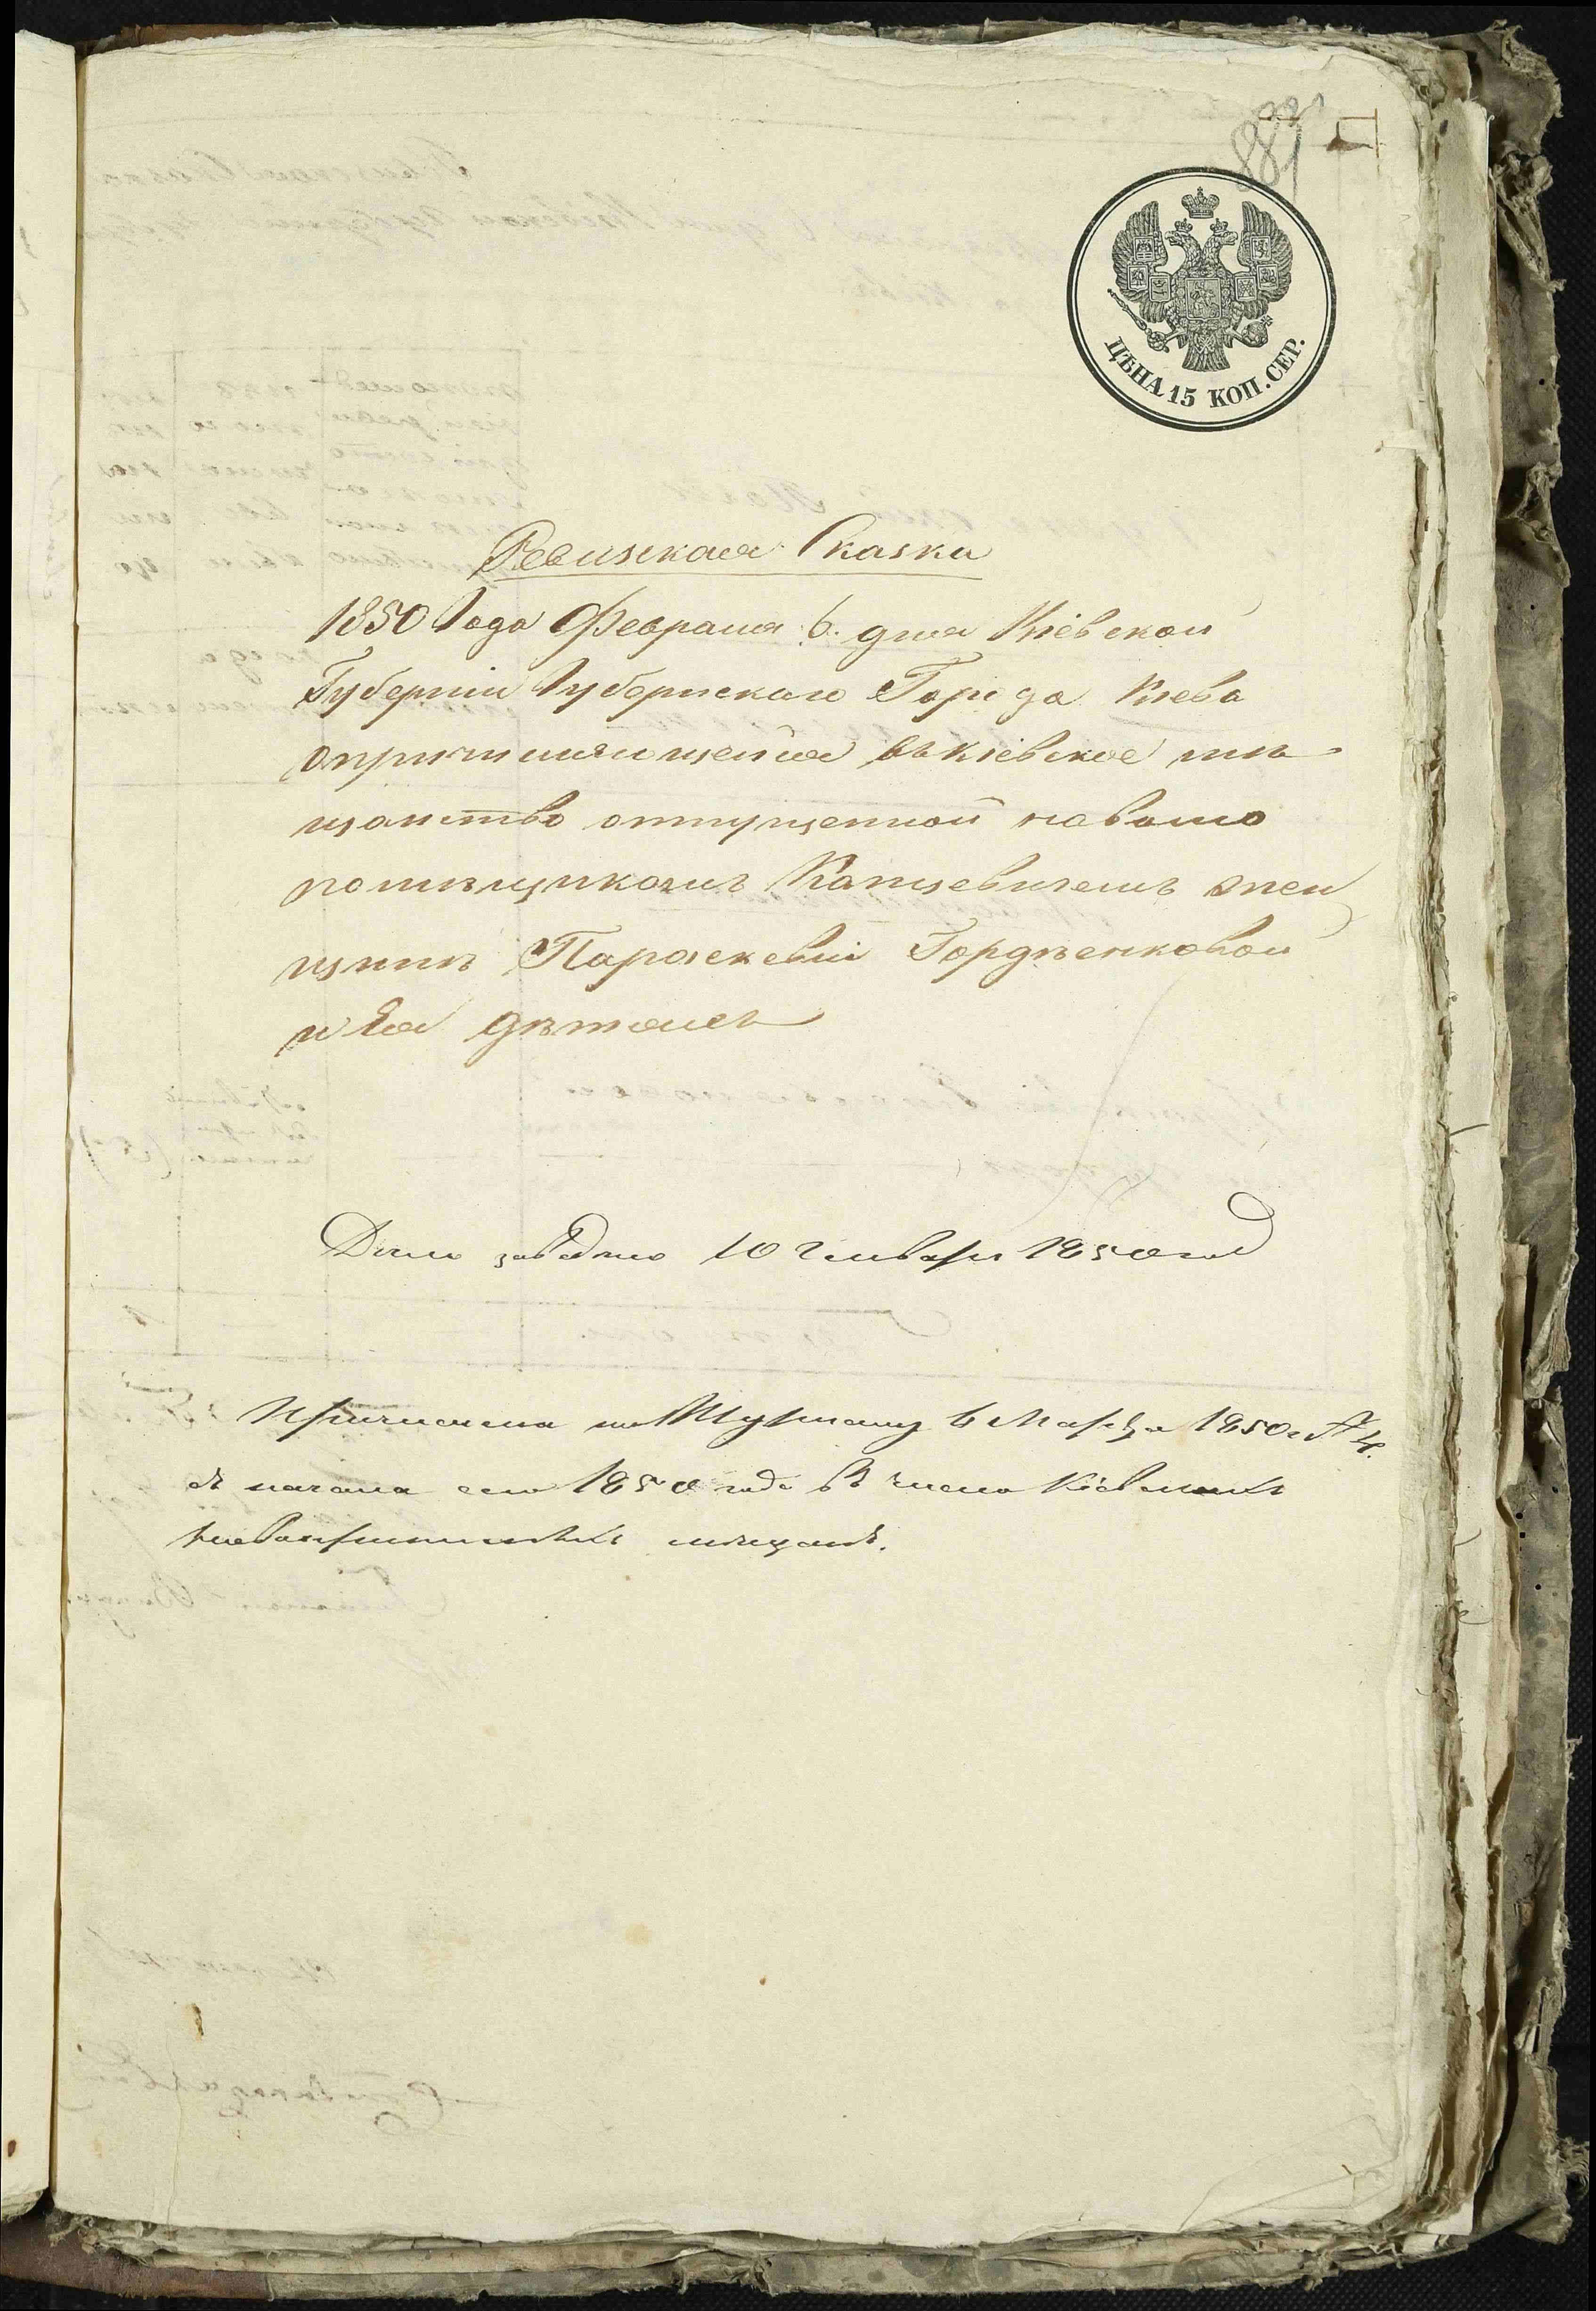 881
ЦѢНА 15 КОП. СЕР.
Ревизская Сказка
1850 Года Февраля 6. дня Кіевской
Губерніи Губернскаго Города Кіева
опричисляющейся въ Кіевское мѣ
щанство отпущенной наволю
помѣщикомъ Канцевичемъ жен
щинѣ Параскевіи Гордѣенковой
и Ея дѣтяхъ
Дѣло заведено 10 Генваря 1850 год
Причислена по Журналу 6 Марта 1850 г № 4.
съ начала сего 1850 года въ число Кіевскихъ
мѣщанъ.